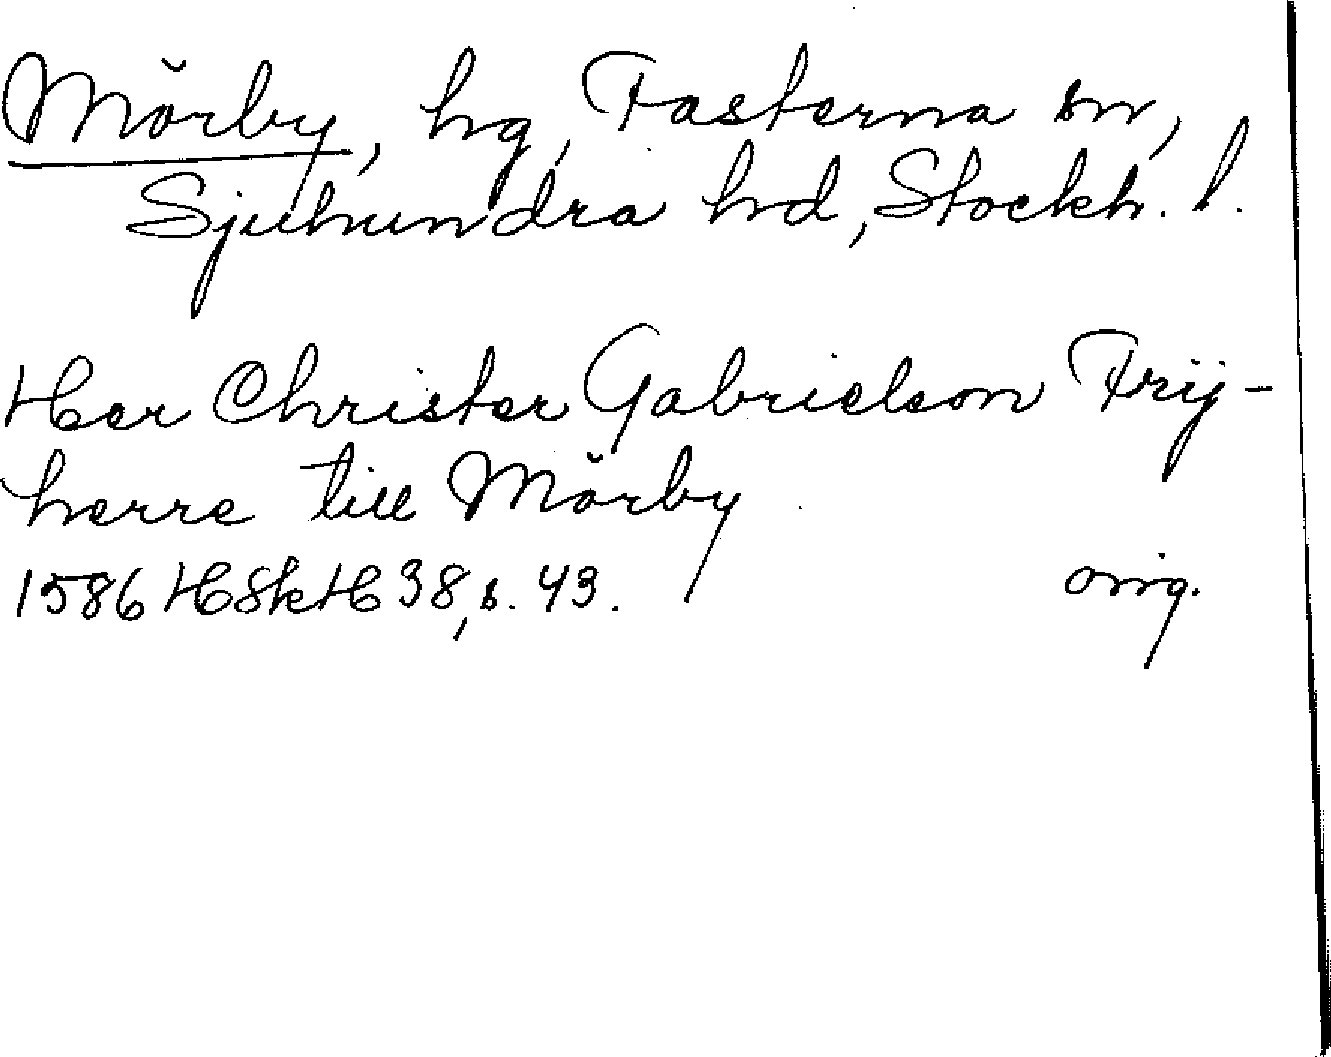 Mörby, hg, Fasterna sn,
Sjuhundra hd, Stockh. l.
Her Christer Gabrielson Frij-
herre till Mörby
1586 HSkH 38, s. 43. orig.